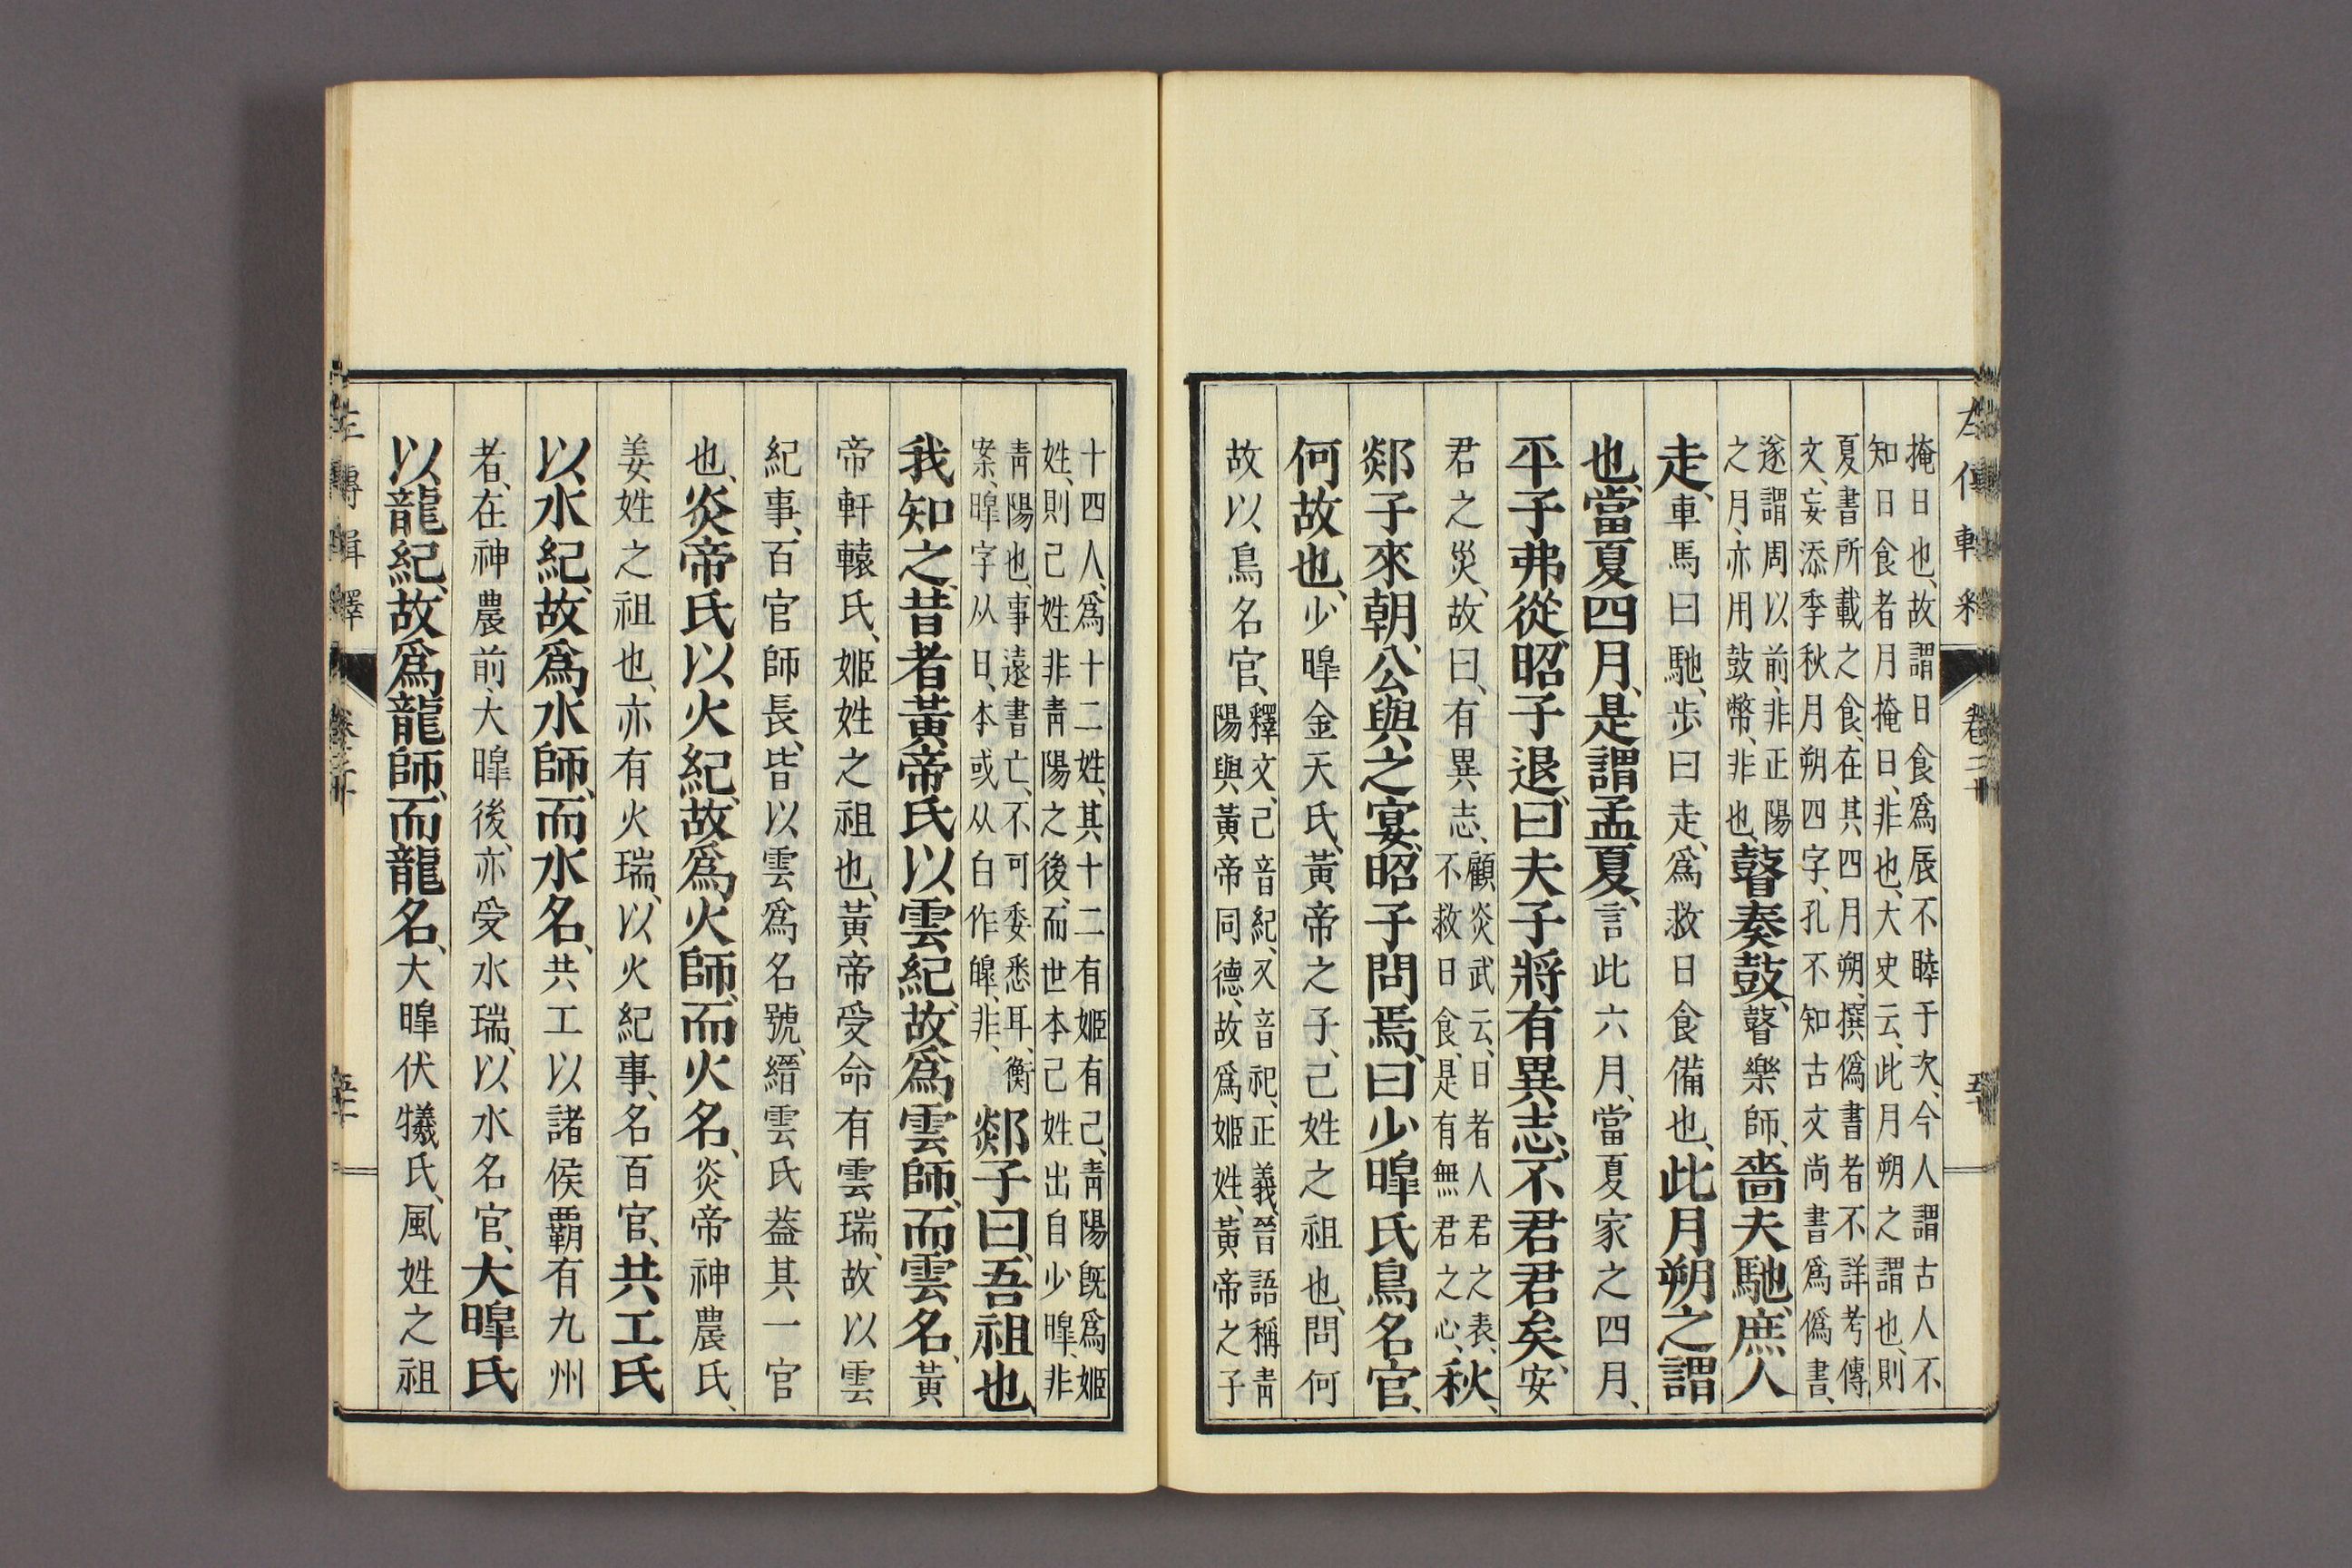 掩日也、故謂日食爲辰不睦于次、今人謂古人不
知日食者月掩日、非也、大史云、此月朔之謂也、則
夏書所載之食、在其四月朔、撰僞書者不詳考傳
文、妄添季秋月朔四字、孔不知古文尚書爲僞書、
遂謂周以前、非正陽
之月、亦用鼓幣、非也、
瞽奏鼓、瞽樂師、嗇夫馳、庶人
走、車馬曰馳、歩曰走、爲救日食備也、此月朔之謂
也、當夏四月、是謂孟夏、言此六月、當夏家之四月、
平子弗從、昭子退、曰夫子將有異志、不君君矣、安
君之災、故曰、有異志、
顧炎武云、日者人君之表、
不救日食、是有無君之心、
秋、
郯子來朝、公與之宴、昭子問焉、曰少暤氏鳥名官、
何故也、少暤金天氏、黃帝之子、己姓之祖也、問何
故以鳥名官、
釋文、己音紀、又音祀、正義、晉語稱靑
陽與黃帝同德、故爲姬姓、黃帝之子
左傳輯釋 卷二十
十四人、爲十二姓、其十二有姬有己、靑陽旣爲姬
姓、則己姓非靑陽之後、而世本己姓出自少暤、非
靑陽也、事遠書亡、不可委悉耳、衡
案、暤字从日、本或从白作皥、非、
郯子曰、吾祖也
我知之、昔者黃帝氏以雲紀、故爲雲師、而雲名、黃
帝軒轅氏、姬姓之祖也、黃帝受命有雲瑞、故以雲
紀事、百官師長、皆以雲爲名號、縉雲氏葢其一官
也、炎帝氏以火紀、故爲火師、而火名、炎帝神農氏、
姜姓之祖也、亦有火瑞、以火紀事、名百官、共工氏
以水紀、故爲水師、而水名、共工以諸侯覇有九州
者、在神農前、大暤後、亦受水瑞、以水名官、大暤氏
以龍紀、故爲龍師、而龍名、大暤伏犧氏、風姓之祖